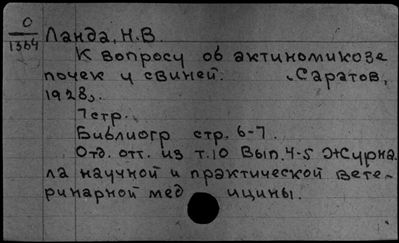 О
1364
Ланда, Н.В.
К вопросу об актиномикозе
почек у свиней. Саратов,
1928г.
7стр.
Библиогр стр. 6-7.
Отд. отт. из т.10 Вып.4-5 Журна-
ла научной и практической Вете-
ринарной мед ицины.